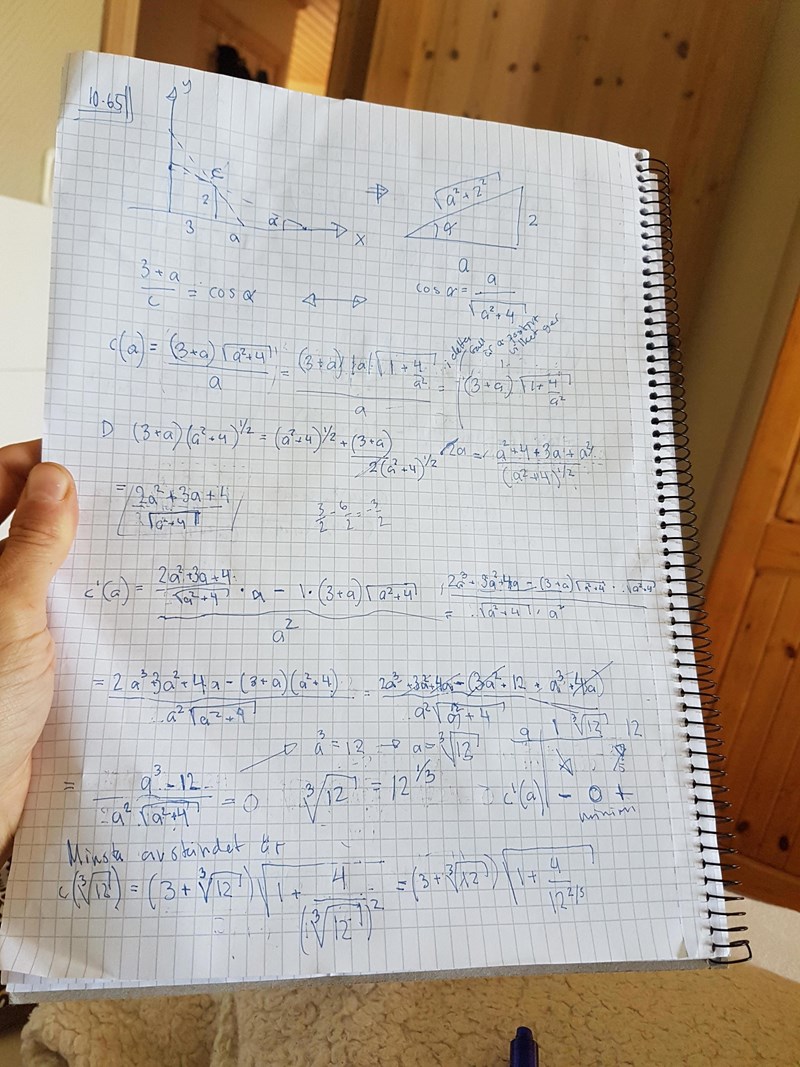 10.65
y
c
2
3
a
α
x
⇒
√(a²+2²)
2
α
a
(3+a)/c = cos α ↔ cos α = a/√(a²+4)
c(a) = (3+a)√(a²+4)/a = (3+a)|a|√(1+4/a²)/a = (3+a)√(1+4/a²)
D (3+a)(a²+4)^(1/2) = (a²+4)^(1/2) + (3+a)/(2(a²+4)^(1/2)) 2a = (a²+4+3a+a²)/(a²+4)^(1/2)
= (2a²+3a+4)/√(a²+4)
3/2 - 6/2 = -3/2
c'(a) = ((2a²+3a+4)/√(a²+4) · a - 1·(3+a)√(a²+4))/a² = (2a³+3a²+4a-(3+a)√(a²+4)·√(a²+4))/(√(a²+4)·a²)
= (2a³+3a²+4a-(3+a)(a²+4))/(a²√(a²+4)) = (2a³+3a²+4a-(3a²+12+a³+4a))/(a²√(a²+4))
a³ = 12 → a = ∛12
a 1 ∛12 12
= (a³-12)/(a²√(a²+4)) = 0
∛12 = 12^(1/3)
c'(a) - 0 + 
Minsta avståndet är
c(∛12) = (3+∛12)√(1+4/(∛12)²) = (3+∛12)√(1+4/12^(2/3))